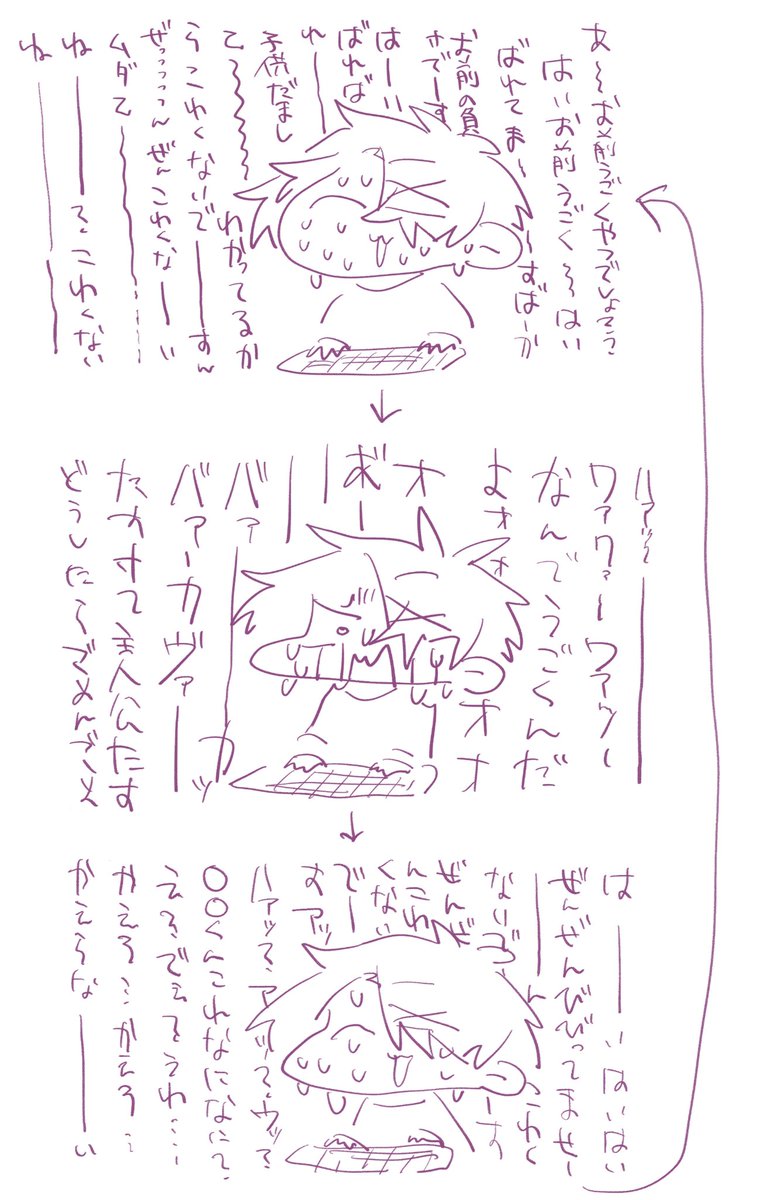 あ〜〜お前うごくやつでしょそう
はいお前うごく〜〜はい
ばれてま〜〜〜すばーか
お前の負
けでーす
はーい
ばれば
れ――
子供だまし
て〜〜〜〜〜わかってるか
らこわくないで――すん
ぜっっっっんぜんこわくなーい
ムダて〜〜〜……
ね――え、こわくない
ね――――
ハァッ――――
ワァワァーワァッー
なんでうごくんだ
よォォオオ
オ
ボー――
バァ――カ
バァーカヴァ――ッ
たすけて主人公たす
どうしたらごめんごめ
は――いはいはい
ぜんぜんびびってませー
――んこわく
ないで――す
ぜんぜ
んこわ
くない
でー
すアッ
ハァッえ、アッえ、ヴッえ、
〇〇くんこれなになにえ、
える、でえるうわ……
かえろ…かえろ…
かえらな――い